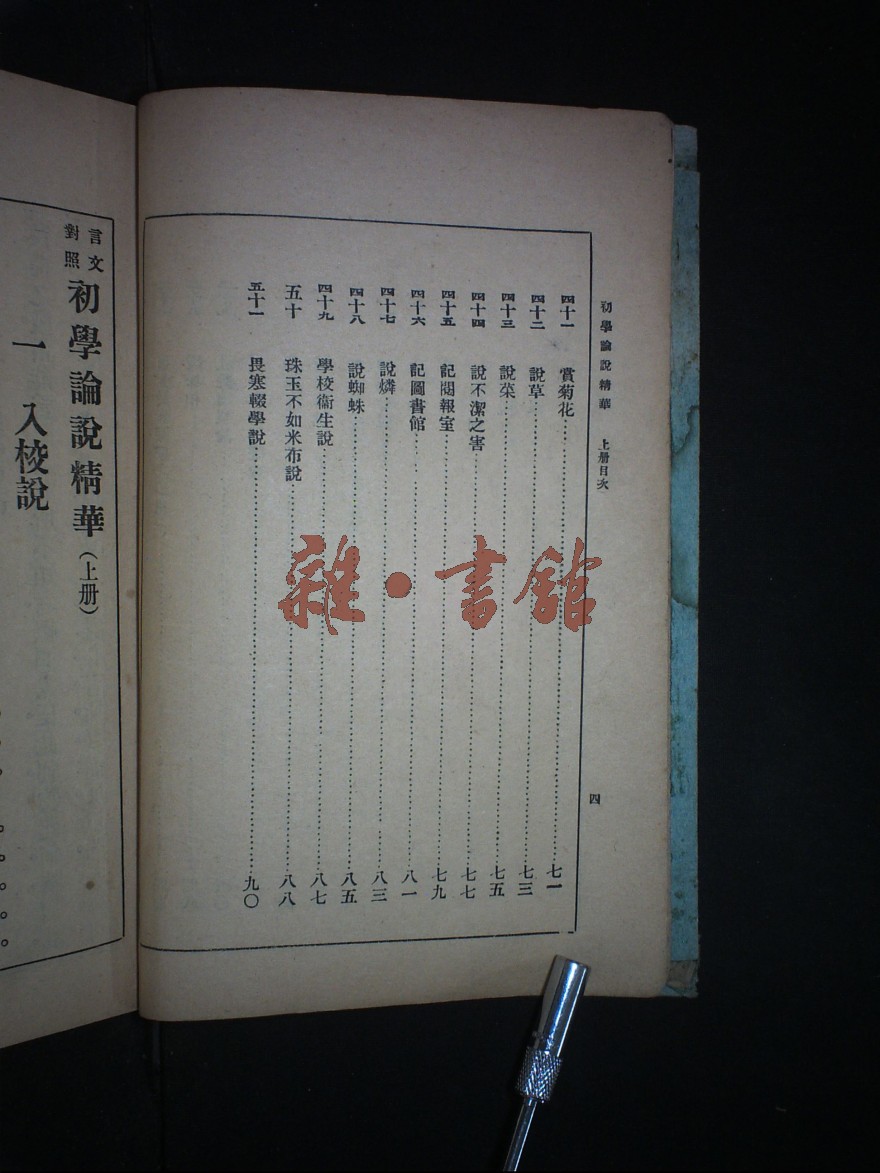 初學論說精華　上册目次
四
四十一　賞菊花……七一
四十二　說草……七三
四十三　說菜……七五
四十四　說不潔之害……七七
四十五　記閱報室……七九
四十六　記圖書館……八一
四十七　說燐……八三
四十八　說蜘蛛……八五
四十九　學校衞生說……八七
五十　珠玉不如米布說……八八
五十一　畏寒輟學說……九〇
言文對照　初學論說精華（上册）
一　入校說
雜·書館